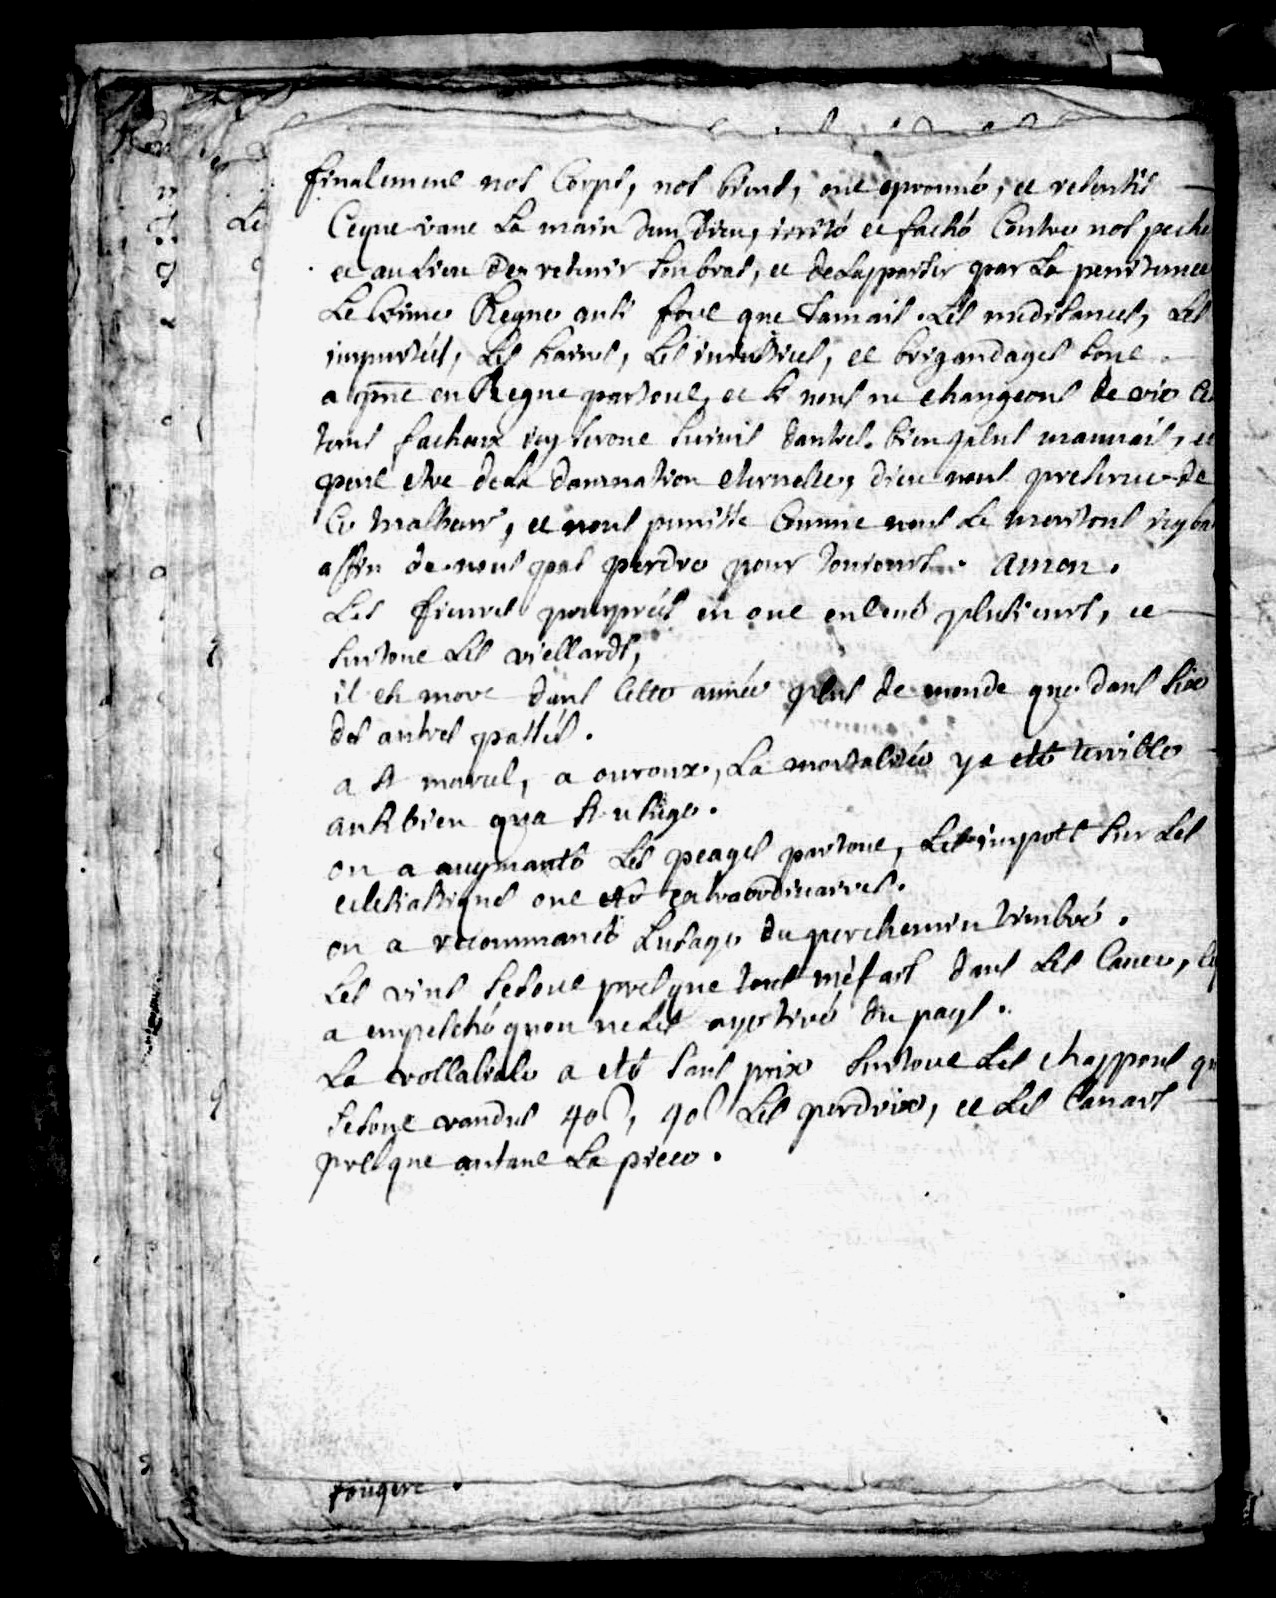 finalement nos Corps, nos biens, ont eprouvé, et resentis
Ceque vaut La main dun dieu, irrité et faché Contre nos peche
et au lieu den retenir son bras, et delappaiser par La penitence
Le Crime Regne ausi fort que Jamais. Les medisances, Les
impuretés, Les haines, Les iniustices, et brigandages sont
en Regne partout, et si nous ne changeons de vie Ce
tems facheux icy seront suivis dautres bien plus mauvais, et
peut etre dela damnation eternelle, dieu nous preserve de
Ce Malheur, et nous punisse Comme nous Le meritons icy ba
affin de nous pas perdre pour tousiours. amen.
Les fievres pourprés en ont enleué plusieurs, et
surtout Les viellards,
il est mort dans Cette année plus de monde que dans six
des autres passés.
a st marcel, a ouroux, La mortalitée ya eté terrible
ausi bien qua st
on a augmanté Les peages partout, Les impots sur Les
eclesiastiques ont eté extraordinaires.
on a recommancé Lusage du perchemin timbré.
Les vins sesont presque tous méfait dans Les Caues,
a empesché quon neles aye tiré du pays.
La vollaliale a eté sans prix surtout Les chappons qu
sesont vandus 40s, 40s Les perdrix, et Les Canars
presque autant La piece.
fougere.